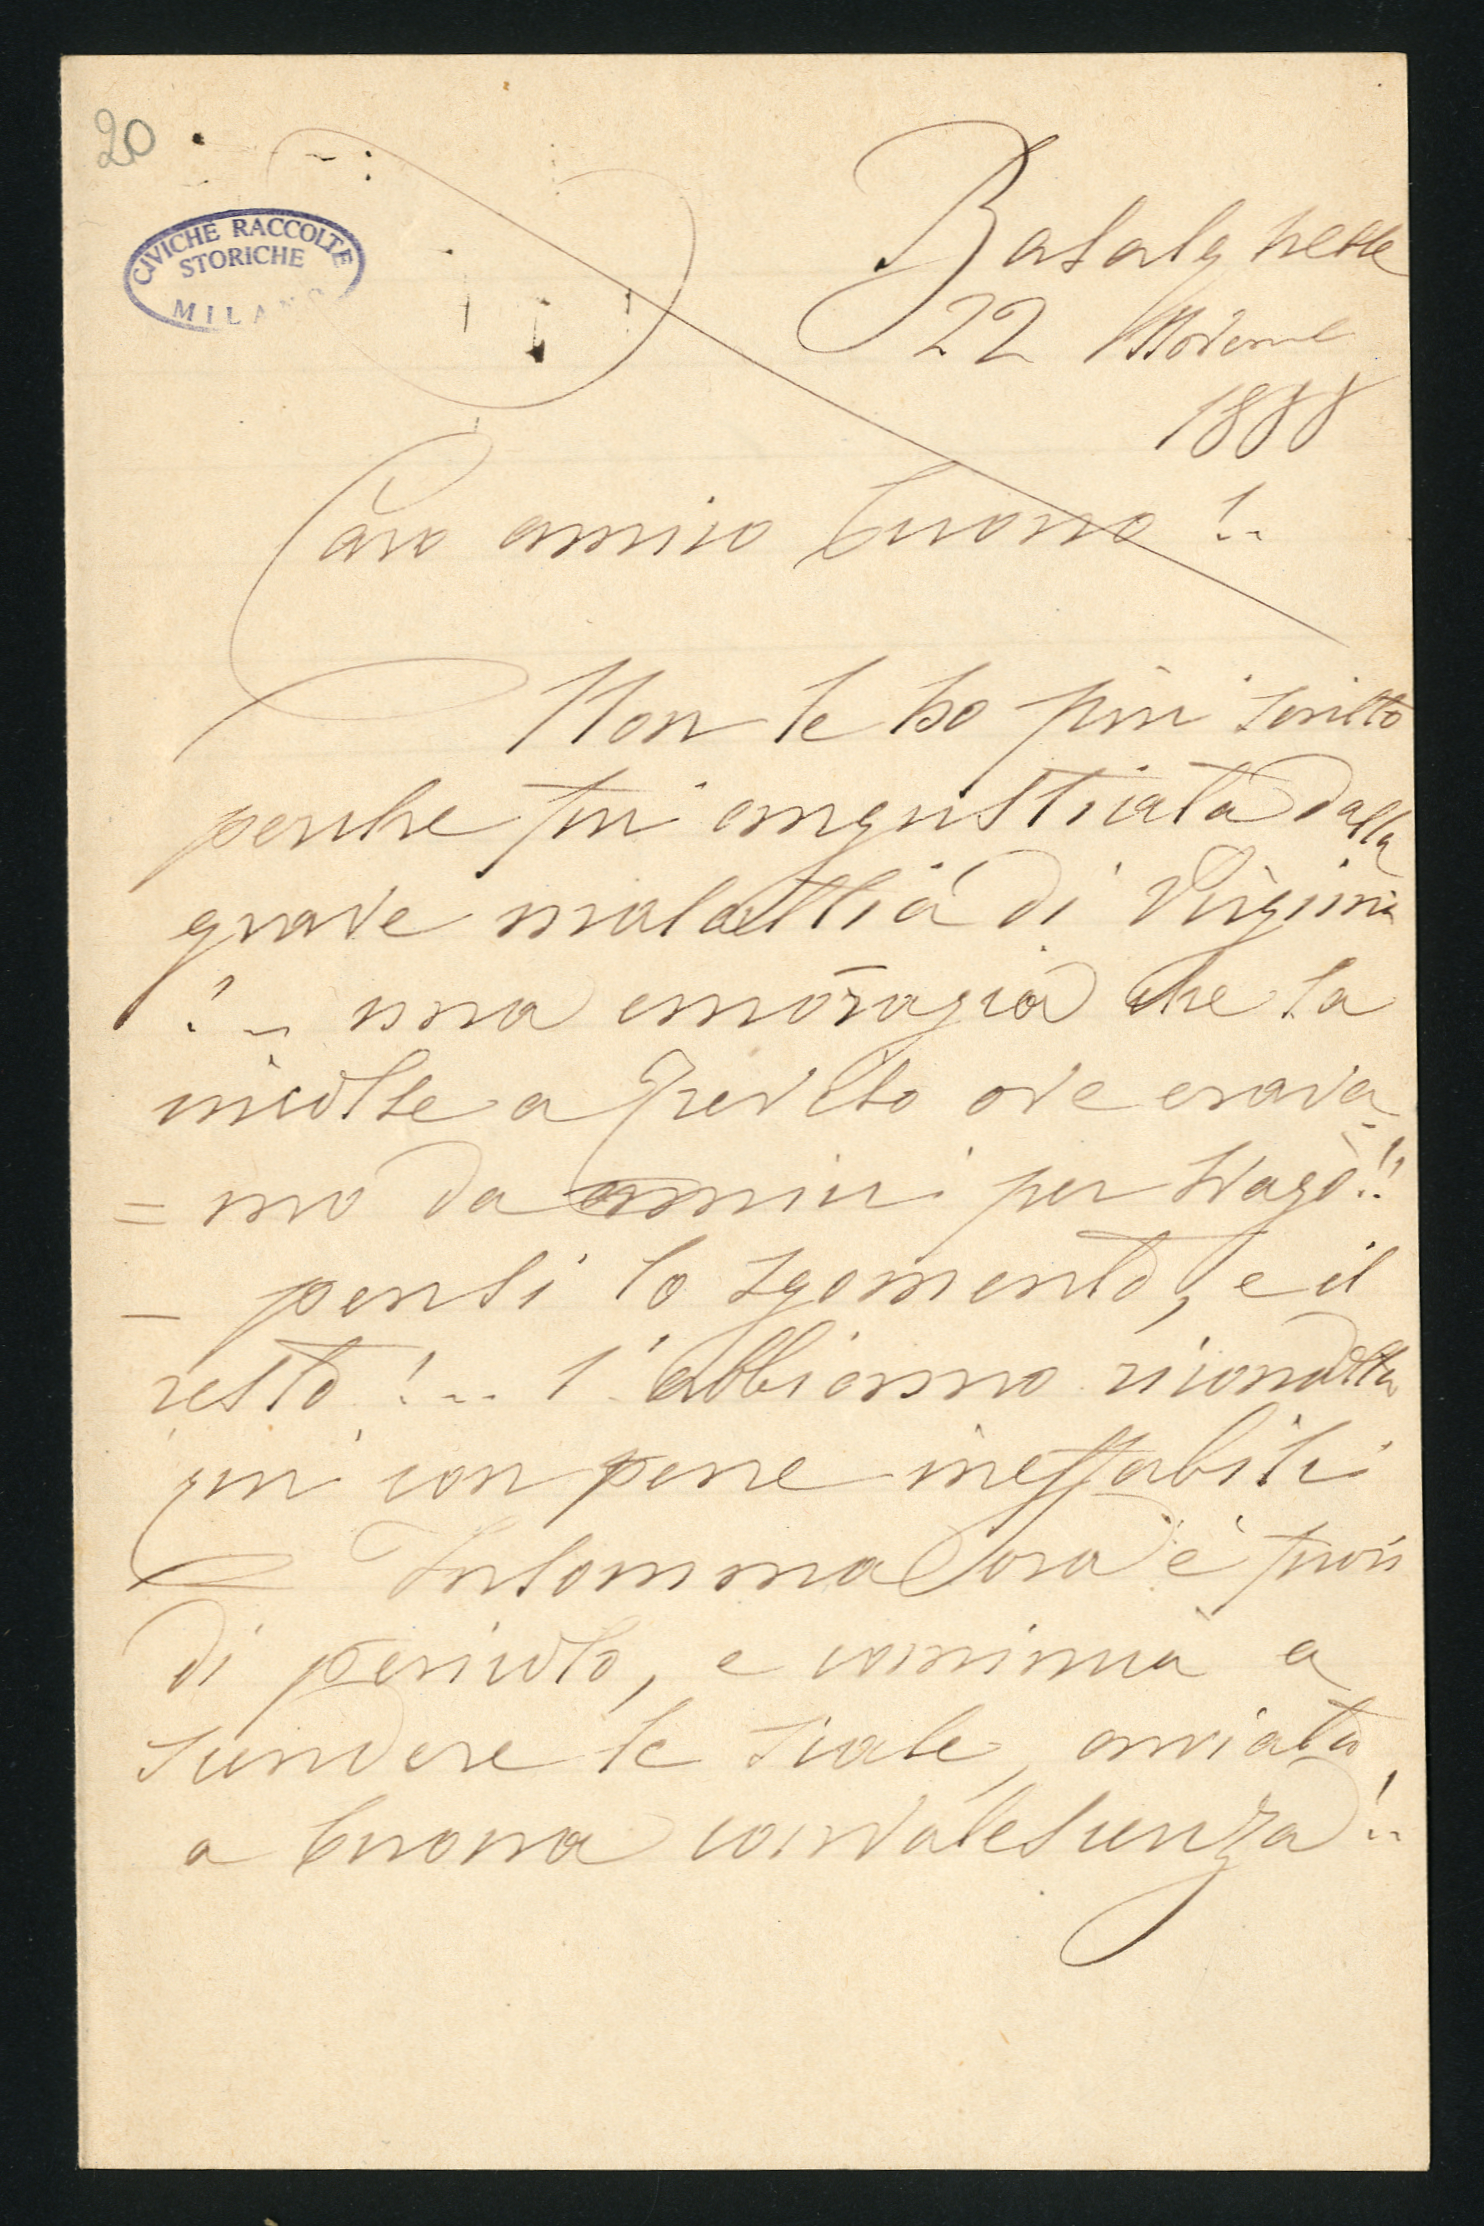 20
CIVICHE RACCOLTE
STORICHE
MILANO
Basalghelle
22 Novem
1888
Caro amico buono!..
Non le ho più scritto
perche fui angustiata dalla
grave malattia di Virginia
!.. una emoragia che la
incolse a Treviso ove erava
= mo da amici per svago!!
_ pensi lo sgomento, e il
resto!... l'abbiamo ricondotta
qui con pene ineffabili
Insomma ora è fuori
di pericolo, e comincia a
scendere le scale, avviata
a buona convalescenza!..